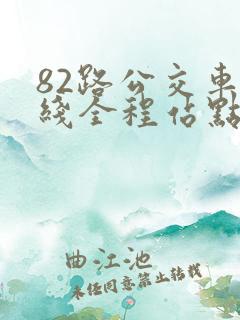 82路公交車
綫全程佔點
曲江池
未经同意禁止转载